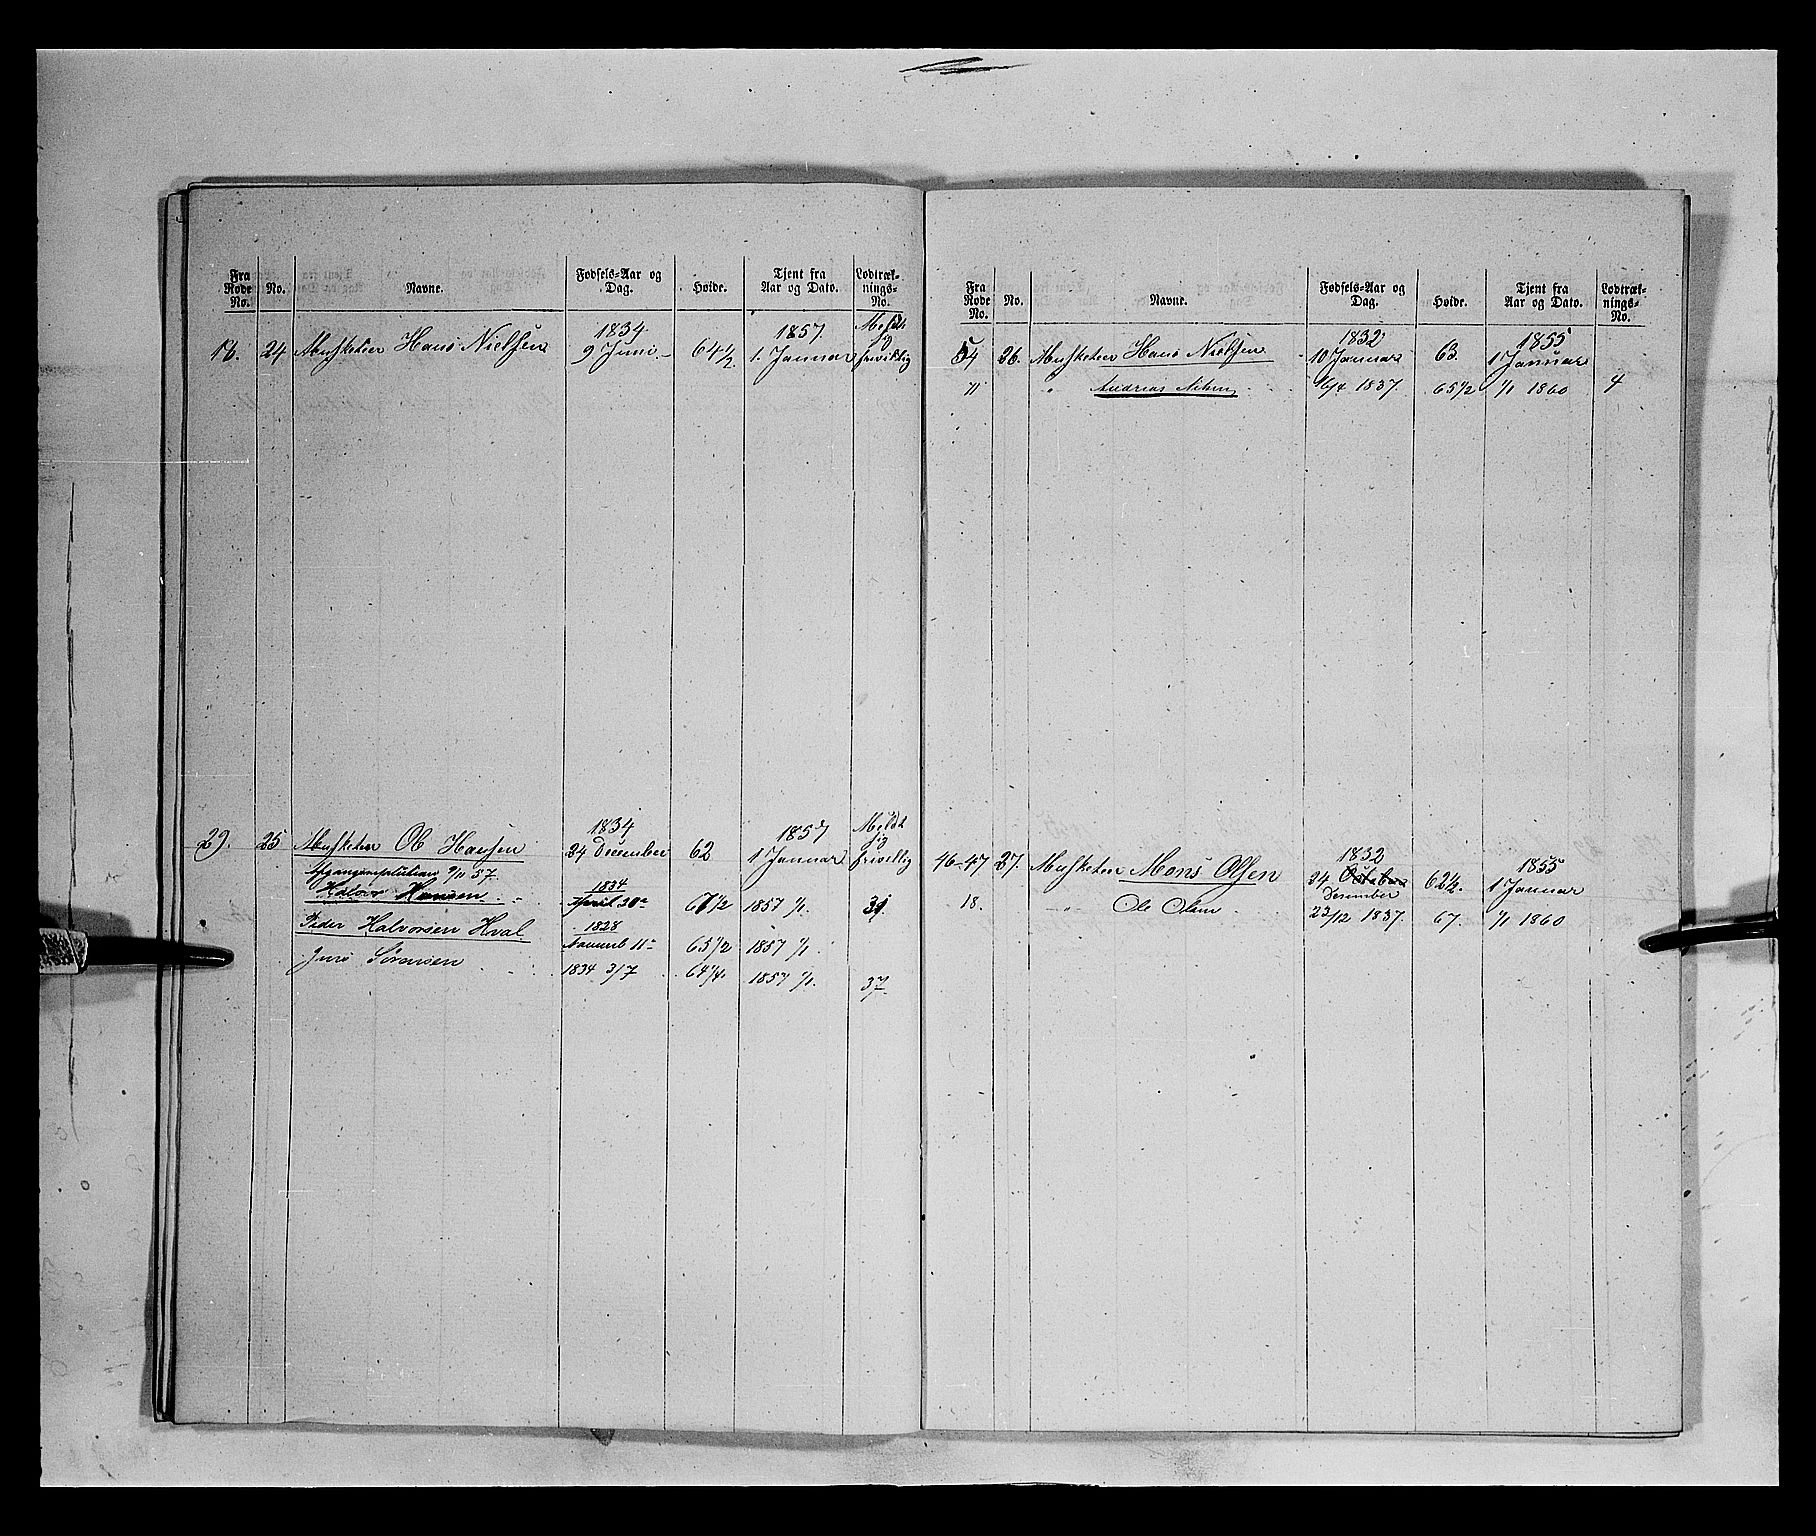 Fra Rode No. No. Navne. Fødsels-Aar og Dag. Høide. Tjent fra Aar og Dato. Lodtræk-nings-No.
1834 1857 Meldt sig
16. 24 Musketeer Hans Nielsen 9 Juni 64 1/2 1. Januar frivillig
1834 1857 Meldt sig
29. 25 Musketeer Ol Hansen 24 December 62 1 Januar frivillig
Afgangsresolution 9/11 57.
Halvor Hansen 1834 April 30te 67 1/2 1857 1/1. 31.
Peder Halvorsen Hval 1828 Novemb 11te 65 1/2 1857 1/1.
Jens Sørensen 1834 3/7 64 1/4. 1857 1/1. 37.
Fra Rode No. No. Navne. Fødsels-Aar og Dag. Høide. Tjent fra Aar og Dato. Lodtræk-nings-No.
1832 1855
54 26. Musketeer Hans Nielsen 10 Januar 63. 1 Januar
11 " Andreas 1837. 65 1/2 1/1 1860 4
1832 1855
46-47 27. Musketeer Mons Olsen 24 October December 62 1/2. 1 Januar
18. " Ole Olsen 23/12 1837. 67. 1/1 1860